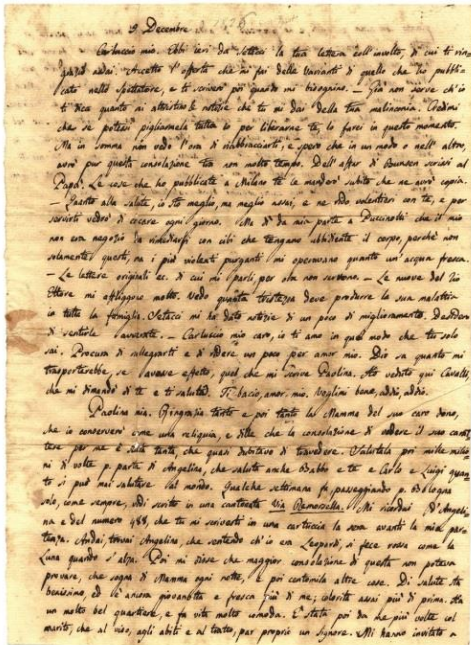 9 Decembre. 1825
Carluccio mio. Ebbi ieri da Setacci la tua lettera coll'involto, di cui ti rin-
grazio assai. Accetto l'offerta che mi fai delle varianti di quello che ho pubbli-
cato nello Spettatore, e ti scriverò poi quando mi bisognino. — Già non serve ch'io
ti dica quanto mi attristino le notizie che tu mi dai della tua malinconia. Credimi
che se potessi pigliarmela tutta io per liberarne te, lo farei in questo momento.
Ma in somma non vedo l'ora di riabbracciarti, e spero che in un modo o nell'altro,
avrò pur questa consolazione tra non molto tempo. Dell'affar di Bunsen scrissi al
Papà. Le cose che ho pubblicate a Milano te le manderò subito che ne avrò copia.
— Quanto alla salute, io sto meglio, ma meglio assai, e ne godo volentieri con te, e per
servirti vedrò di cacare ogni giorno. Ma dì da mia parte a Puccinotti che il mio
non era negozio da rimediarsi con cibi che tengano ubbidiente il corpo, perchè non
solamente questi, ma i più violenti purganti mi operavano quanto un'acqua fresca.
— Le lettere originali ec. di cui mi parli, per ora non servono. — Le nuove del Zio
Ettore mi affliggono molto. Vedo quanta tristezza deve produrre la sua malattia
in tutta la famiglia. Setacci mi ha dato notizie di un poco di miglioramento. Desidero
di sentirle avverate. — Carluccio mio caro, io ti amo in quel modo che tu solo
sai. Procura di rallegrarti e di ridere un poco per amor mio. Dio sa quanto mi
trasporterebbe, se l'avesse effetto, quel che mi scrive Paolina. Ho veduto qui Cavalli,
che mi dimandò di te e ti saluta. Ti bacio, amor mio. Voglimi bene, addio, addio.
Paolina mia. Ringrazia tanto e poi tanto la Mamma del suo caro dono,
che io conserverò come una reliquia, e dille che la consolazione di vedere il suo carat-
tere per me è stata tanta, che quasi dubitavo di travedere. Salutala poi mille milio-
ni di volte p. parte di Angelina, che saluta anche Babbo e te e Carlo e Luigi quan-
to si può mai salutare al mondo. Qualche settimana fa, passeggiando per Bologna
solo, come sempre, vidi scritto in una cantonata Via Remorsella. Mi ricordai d'Angeli-
na e del numero 488, che tu mi scrivesti in una cartuccia la sera avanti la mia par-
tenza. Andai, trovai Angelina che sentendo ch'io era Leopardi, si fece rossa come la
Luna quando s'alza. Poi mi disse che maggior consolazione di questa non poteva
provare, che sogna di Mamma ogni notte, e poi centomila altre cose. Di salute sta
benissimo, ed è ancora giovanotta e fresca più di me; colorita assai più di prima. Ha
un molto bel quartiere, e fa vita molto comoda. È stata poi da me più volte col
marito, che al viso, agli abiti e al tratto, par proprio un Signore. Mi hanno invitato a